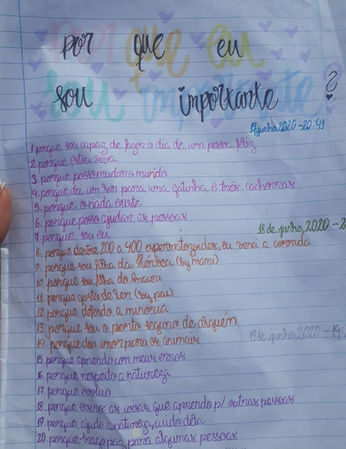 por que eu
sou importante ?
17 junho 2020 - 20:41
1. porque sou capaz de fazer o dia de uma pessoa feliz
2. porque estou viva
3. porque posso mudar o mundo
4. porque dei um lar para uma galinha e três cachorros
5. porque o nada existe
6. porque posso ajudar as pessoas
7. porque sou eu
18 de junho, 2020 - 2
8. porque dentre 200 a 400 espermatozoides, eu serei a
9. porque sou filha da (by mami)
10. porque sou filha do
11. porque gosto de ler (by, pau)
12. porque defendo a minoria
13. porque sou o ponto seguro de alguém
14. porque dou amor para os animais
19 de junho 2020 - 19:
15. porque aprendo com meus erros
16. porque respeito a natureza
17. porque evoluo
18. porque ensino as coisas que aprendo p/ outras pessoas
19. porque ajudo a natureza, cuido dela
20. porque trago paz para algumas pessoas